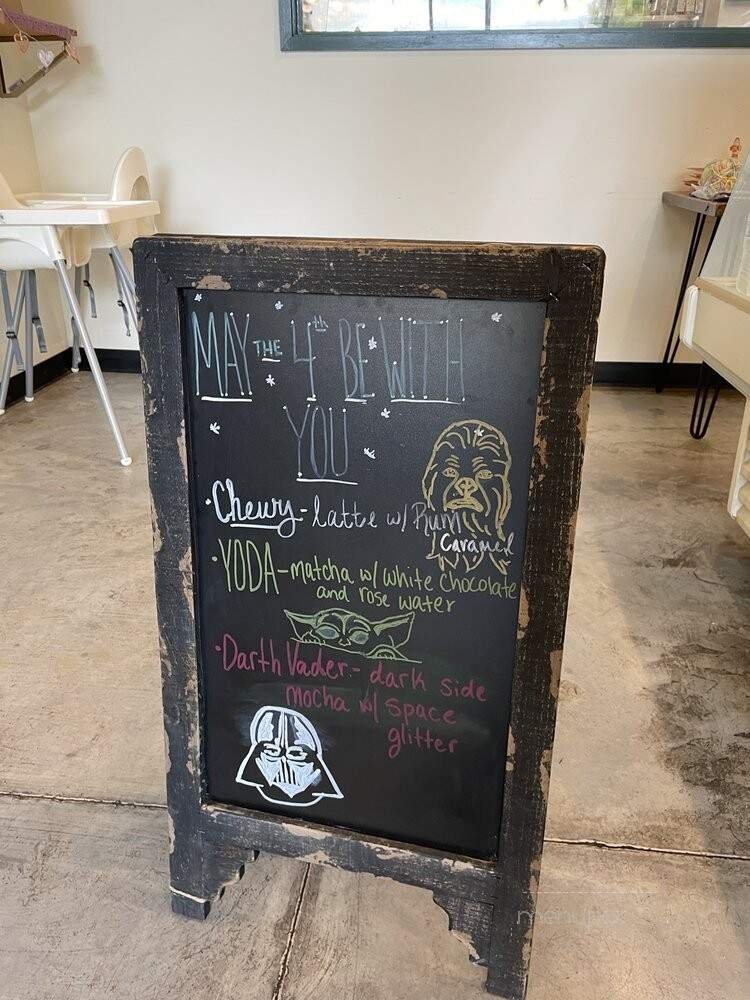 MAY THE 4th BE WITH
YOU
• Chewy - latte w/ Rum
Caramel
• YODA - matcha w/ white chocolate
and rose water
• Darth Vader - dark side
mocha w/ space
glitter